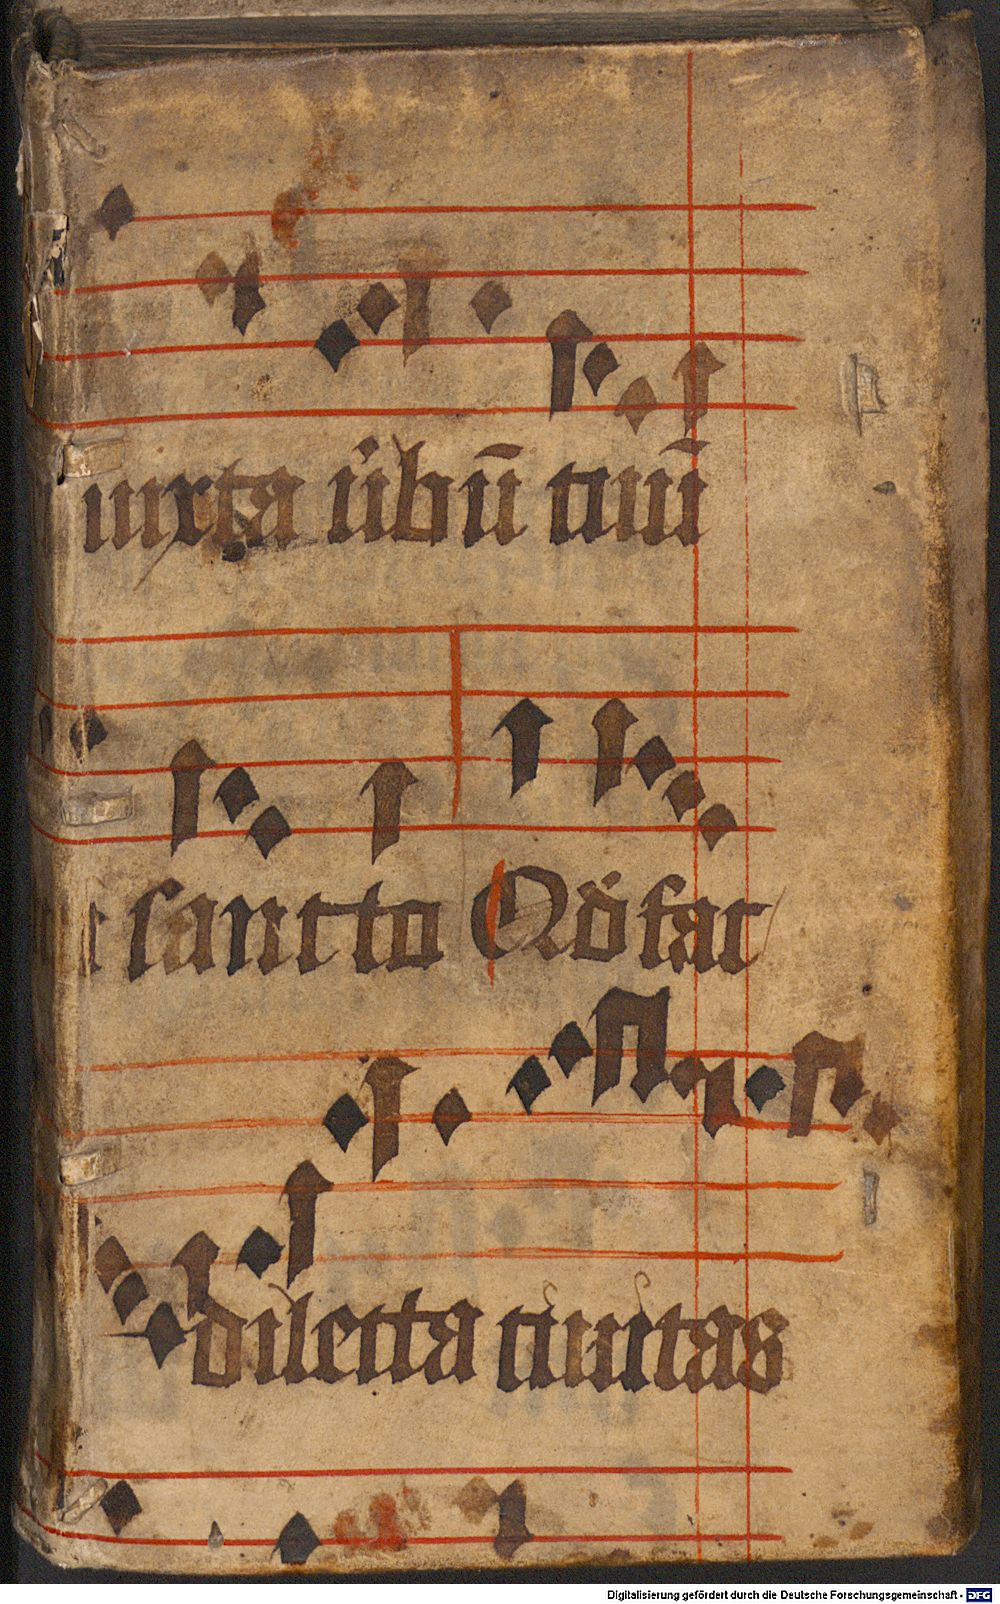 iuxta ỽbũ tuũ
sancto Qd̄ fac
dilecta ciuitas
Digitalisierung gefördert durch die Deutsche Forschungsgemeinschaft - DFG